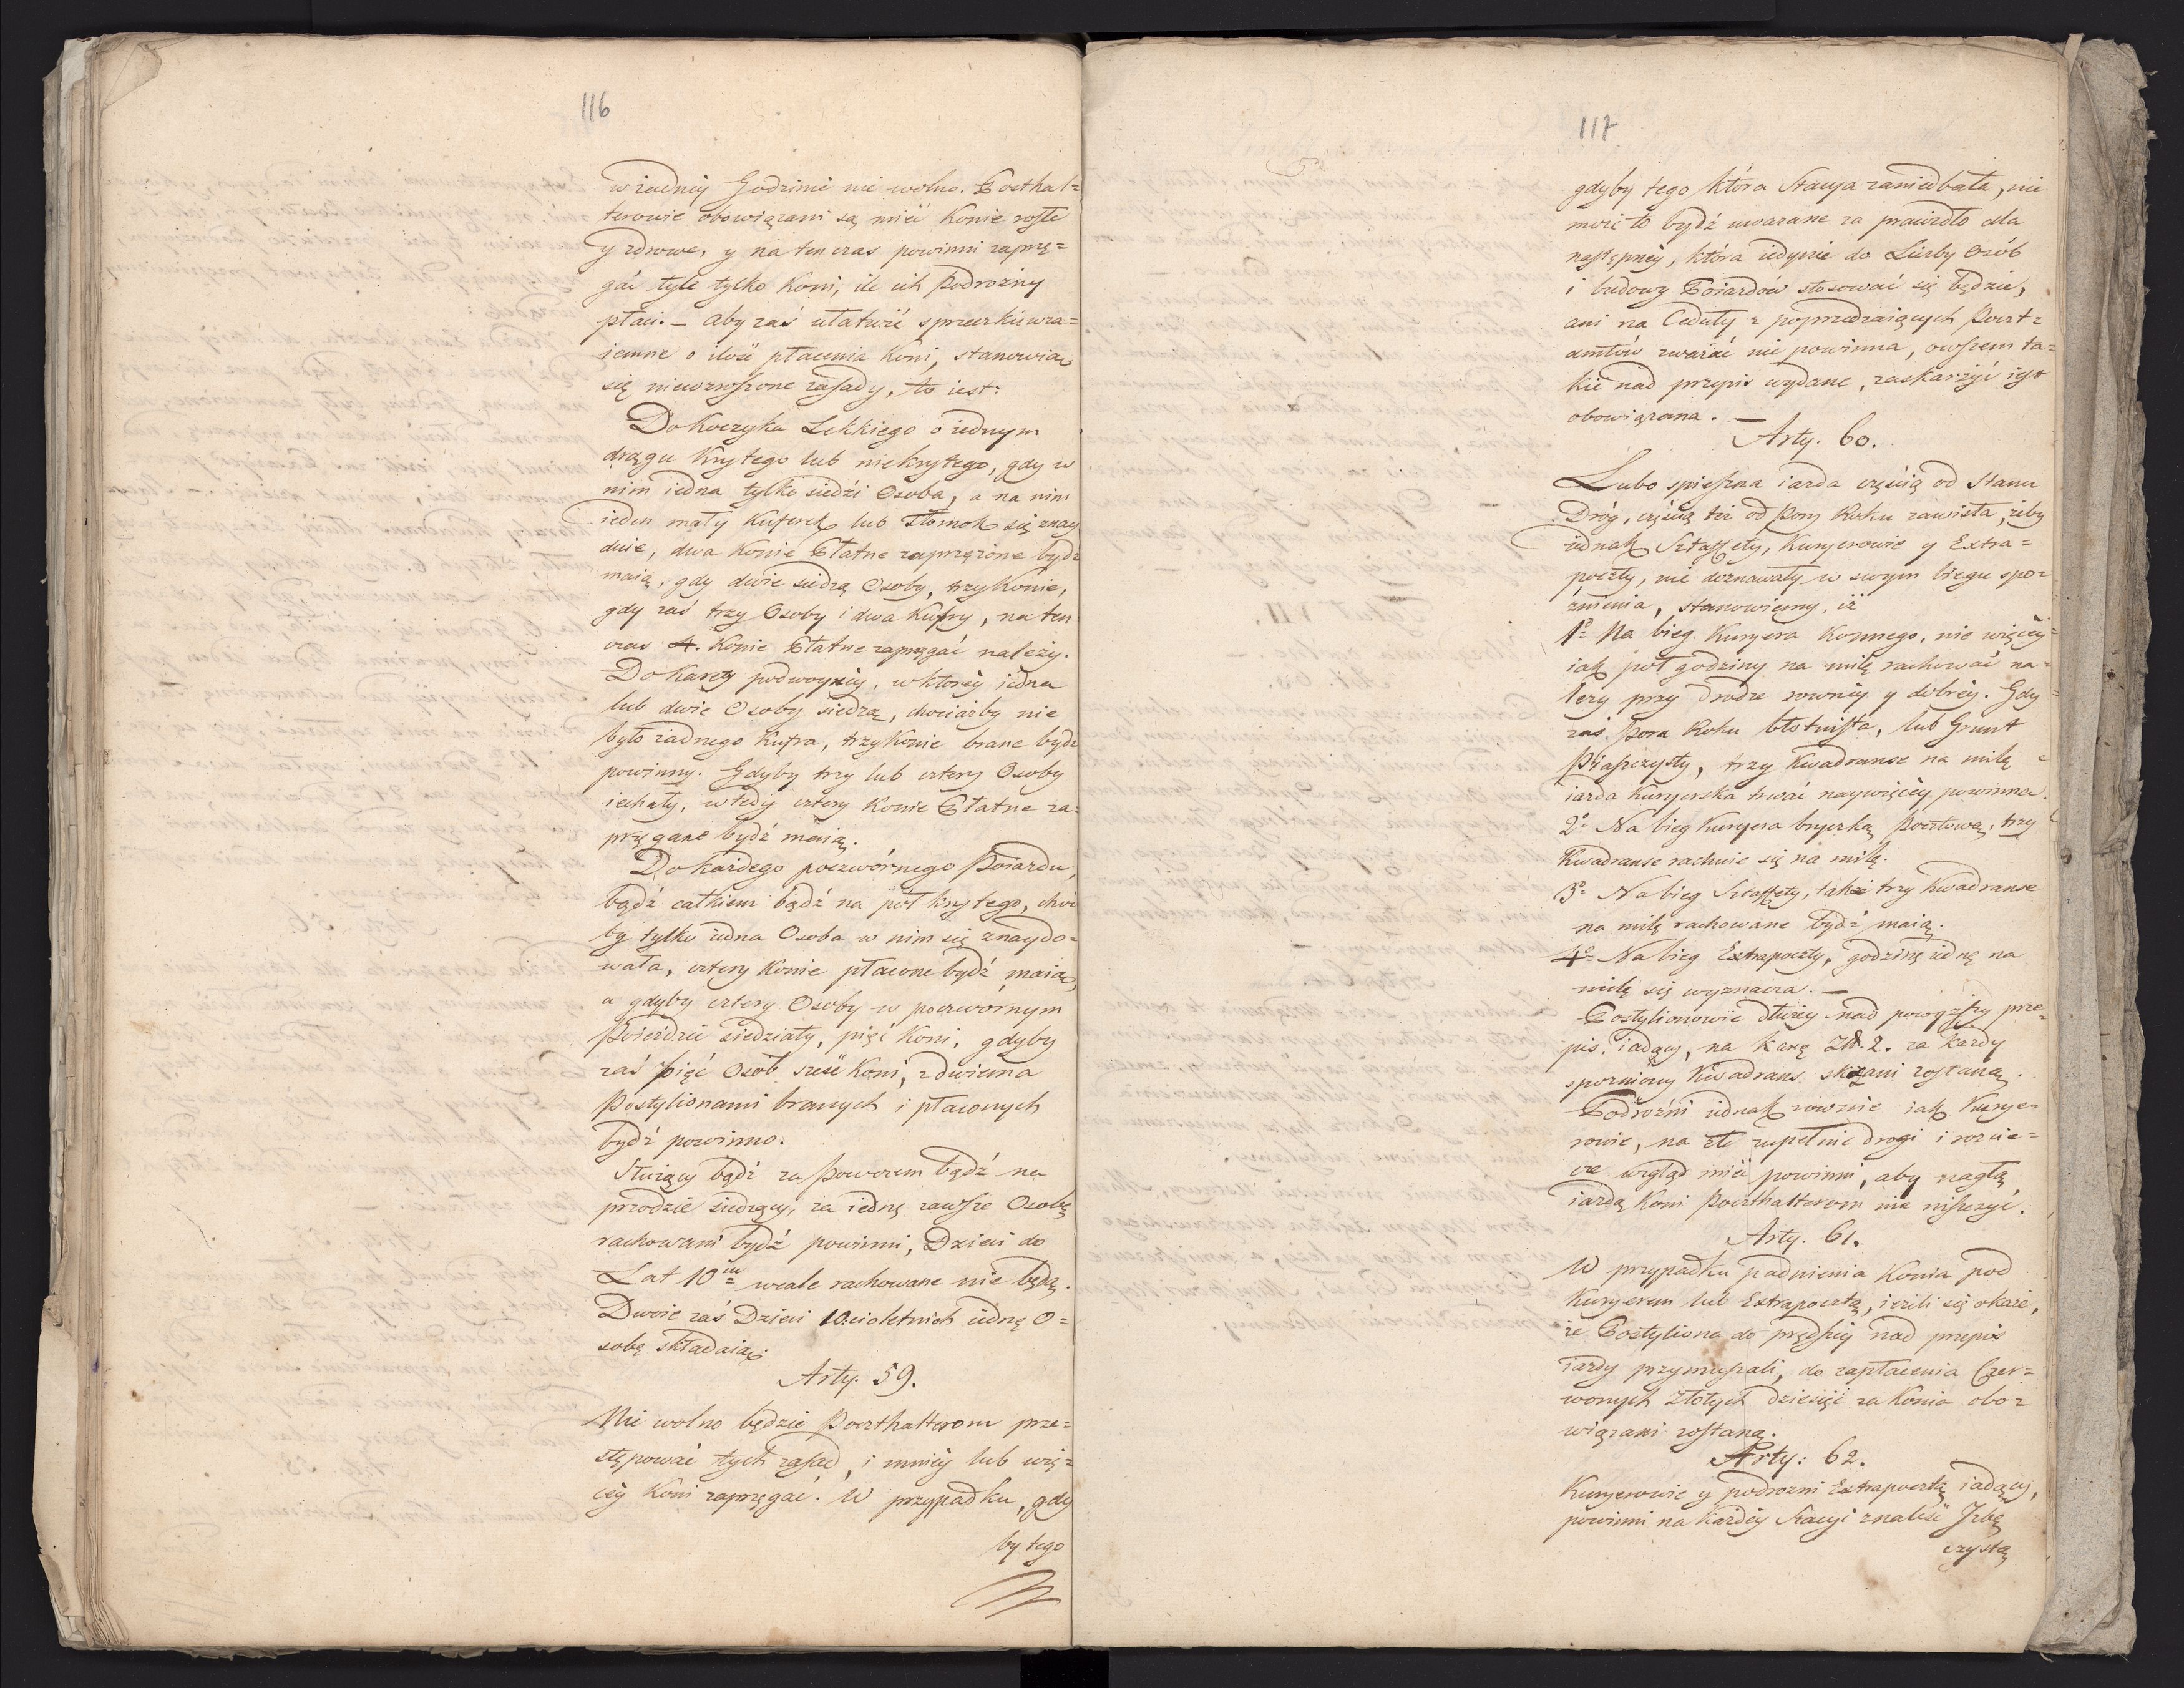 116
w iednéy Godzinie nie wolno. Poczthal=
terowie obowiązani są mieć Konie rosłe
y zdrowe, y na ten czas powinni zaprzę=
gać tyle tylko Koni, ile ich Podrożny
płaci. — Aby zaś ułatwić sprzeczki wza=
iemne o ilość płacenia Koni, stanowią
się niewzroszone zasady, to iest:
Do Koczyka Lekkiego o iednym
drągu Krytego lub niekrytego, gdy w
nim iedna tylko siedzi Osoba, a na nim
ieden mały Kuferek lub Tłomok się znay
duie, dwa Konie Płatne zaprzężone bydź
maią, gdy dwie siedzą Osoby, trzy Konie,
gdy zaś trzy Osoby i dwa Kufry, na ten
czas 4. Konie Płatne zaprzęgać należy.
Do Karety podwoyney, w ktoréy iedna
lub dwie Osoby siedzą, chociażby nie
było żadnego Kufra, trzy Konie brane bydź
powinny. Gdyby trzy lub cztery Osoby
iechały, wtedy cztery Konie Płatne za=
przęgane bydź maią.
Do każdego poczwórnego Poiazdu,
bądź całkiem bądź na pół krytego, choć
by tylko iedna Osoba w nim się znaydo=
wała, cztery Konie płacone bydź maią,
a gdyby cztery Osoby w poczwórnym
Poieździe siedziały, pięć Koni, gdyby
zaś pięć Osób sześć Koni, z dwiema
Postylionami branych i płaconych
bydź powinno.
Służący bądź za Powozem bądź na
przodzie siedzący, za iednę zawsze Osobę
rachowani bydź powinni, Dzieci do
Lat 10iu wcale rachowane nie będą.
Dwoie zaś Dzieci 10.cioletnich iednę O=
sobę składaią.
Arty. 59.
Nie wolno będzie Poczthalterom prze=
stępować tych zasad, i mniéy lub wię=
céy Koni zaprzęgać. W przypadku, gdy
by tego
117
gdyby tego która Stacya zaniedbała, nie
może to bydź uważane za prawidło dla
następnéy, która iedynie do Liczby Osób
i budowy Poiazdów stosować się będzie,
ani na Ceduły z poprzedzaiących Poczt=
amtów zważać nie powinna, owszem ta=
kie nad przepis wydane, zaskarżyć iest
obowiązana. —
Arty. 60.
Lubo spieszna iazda częścią od Stanu
Dróg, częścią też od Pory Roku zawisła, żeby
iednak Sztaffety, Kuryerowie y Extra=
poczty, nie doznawały w swym biegu spo=
źnienia, stanowiemy, iż
1o Na bieg Kuryera Konnego, nie więcéy
iak pół godziny na milę rachować na=
leży przy drodze rownéy y dobréy. Gdy
zaś Pora Roku błotnista, lub Grunt
Piaszczysty, trzy Kwadranse na milę
iazda Kuryerska trwać naywięcéy powinna.
2o Na bieg Kuryera bryczką Pocztową, trzy
Kwadranse rachuie się na milę.
3o Na bieg Sztaffety, także trzy Kwadranse
na milę rachowane bydź maią.
4o Na bieg Extrapoczty, godzinę iednę na
milę się wyznacza. —
Postylionowie dłużéy nad powyższy prze=
pis iadący, na karę Zł. 2. za każdy
spozniony Kwadrans skazani zostaną.
Podrożni iednak rownie iak Kurye=
rowie, na złe zupełnie drogi i rozcie=
cze wzgląd mieć powinni, aby nagłą
iazdą Koni Poczthalterom nie niszczyć.
Arty. 61.
W przypadku padnienia Konia pod
Kuryerem lub Extrapocztą, ieżeli się okaże,
że Postyliona do prędszéy nad przepis
iazdy przymuszali, do zapłacenia Czer=
wonych Złotych dziesięć za Konia obo=
wiązani zostaną.
Arty: 62.
Kuryerowie y podrozni Extrapocztą iadący,
powinni na każdéy Stacyi znaleść Izbę
czystą